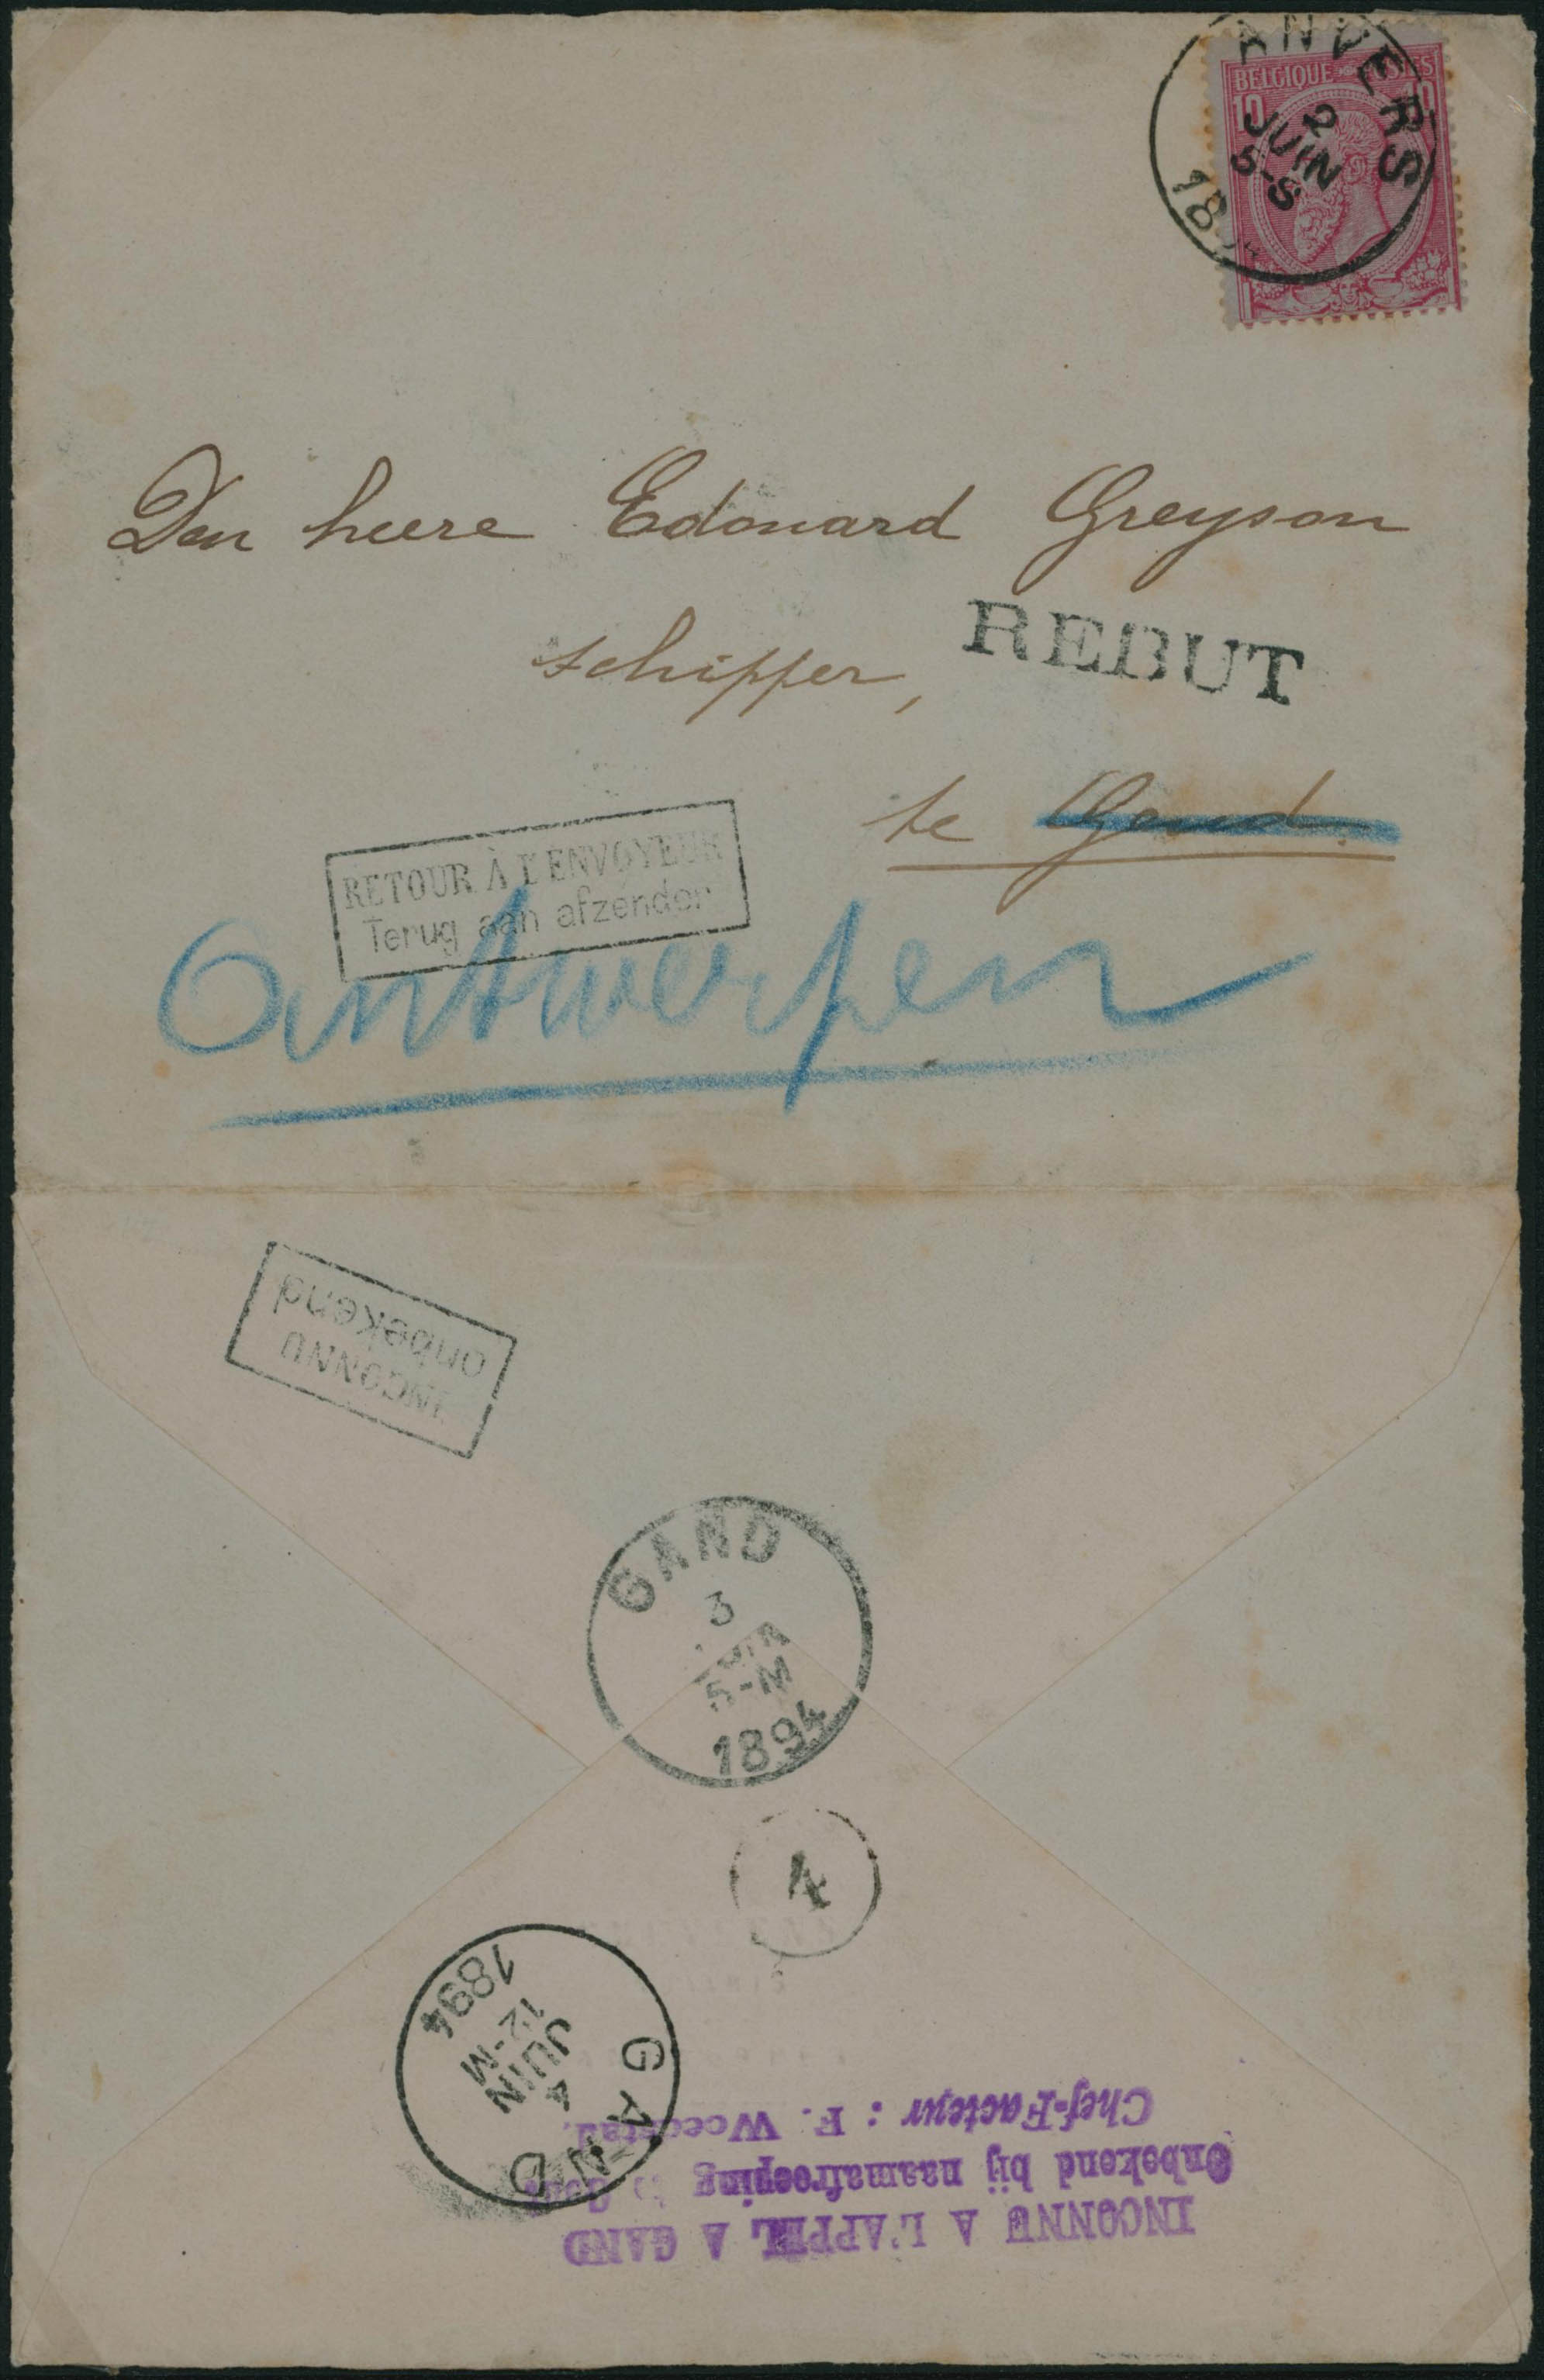 ANVERS
2
JUIN
5-S
BELGIQUE POSTES
10 10
Den heere Edouard Greyson
schipper,
REBUT
te Gand.
RETOUR À L'ENVOYEUR
Terug aan afzender
Antwerpen
INCONNU
onbekend
GAND
3
JUIN
5-M
1894
4
GAND
4
JUIN
12-M
1894
INCONNU A L'APPEL A GAND
Onbekend bij naamafroeping
Chef-Facteur : F.